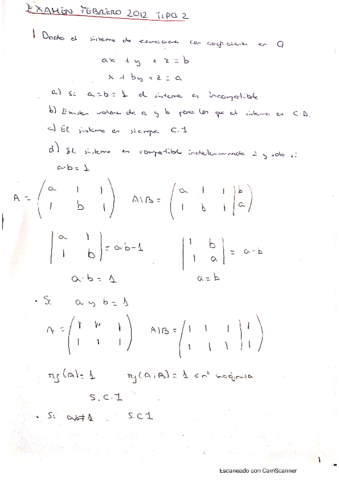 EXAMEN FEBRERO 2012 TIPO 2
1 Dado el sistema de ecuaciones con coeficientes en Q
ax + y + z = b
x + by + z = a
a) Si a=b=1 el sistema es incompatible
b) Existen valores de a y b para los que el sistema es C.D.
c) El sistema es siempre C.I
d) El sistema es compatible indeterminado 2 y solo si
a·b = 1
A = ( a 1 1 A|B = ( a 1 1 | b
1 b 1 ) 1 b 1 | a )
| a 1 | = a·b-1 | 1 b | = a-b
| 1 b | | 1 a |
a·b = 1 a=b
• Si a y b = 1
A = ( 1 1 1 A|B = ( 1 1 1 | 1
1 1 1 ) 1 1 1 | 1 )
rg(A)=1 rg(A|B)=1 < nº incógnita
S.C.I
• Si ab≠1 S.C.I
1
Escaneado con CamScanner